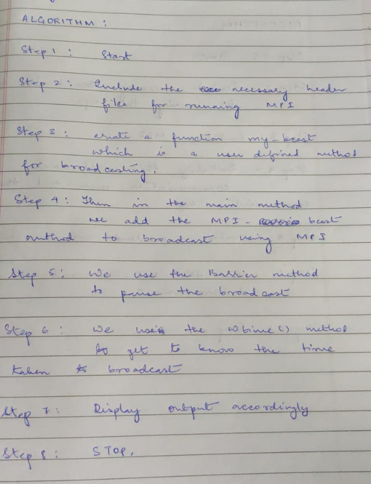 ALGORITHM :
Step 1 : Start
Step 2 : Include the necessary header
files for running MPI
Step 3 : create a function my_bcast
which is a user defined method
for broadcasting.
Step 4 : Then in the main method
we add the MPI- bcast
method to broadcast using MPI
Step 5 : We use the Barrier method
to pause the broadcast
Step 6 : We use the Wtime() method
to get to know the time
taken to broadcast
Step 7 : Display output accordingly
Step 8 : STOP.